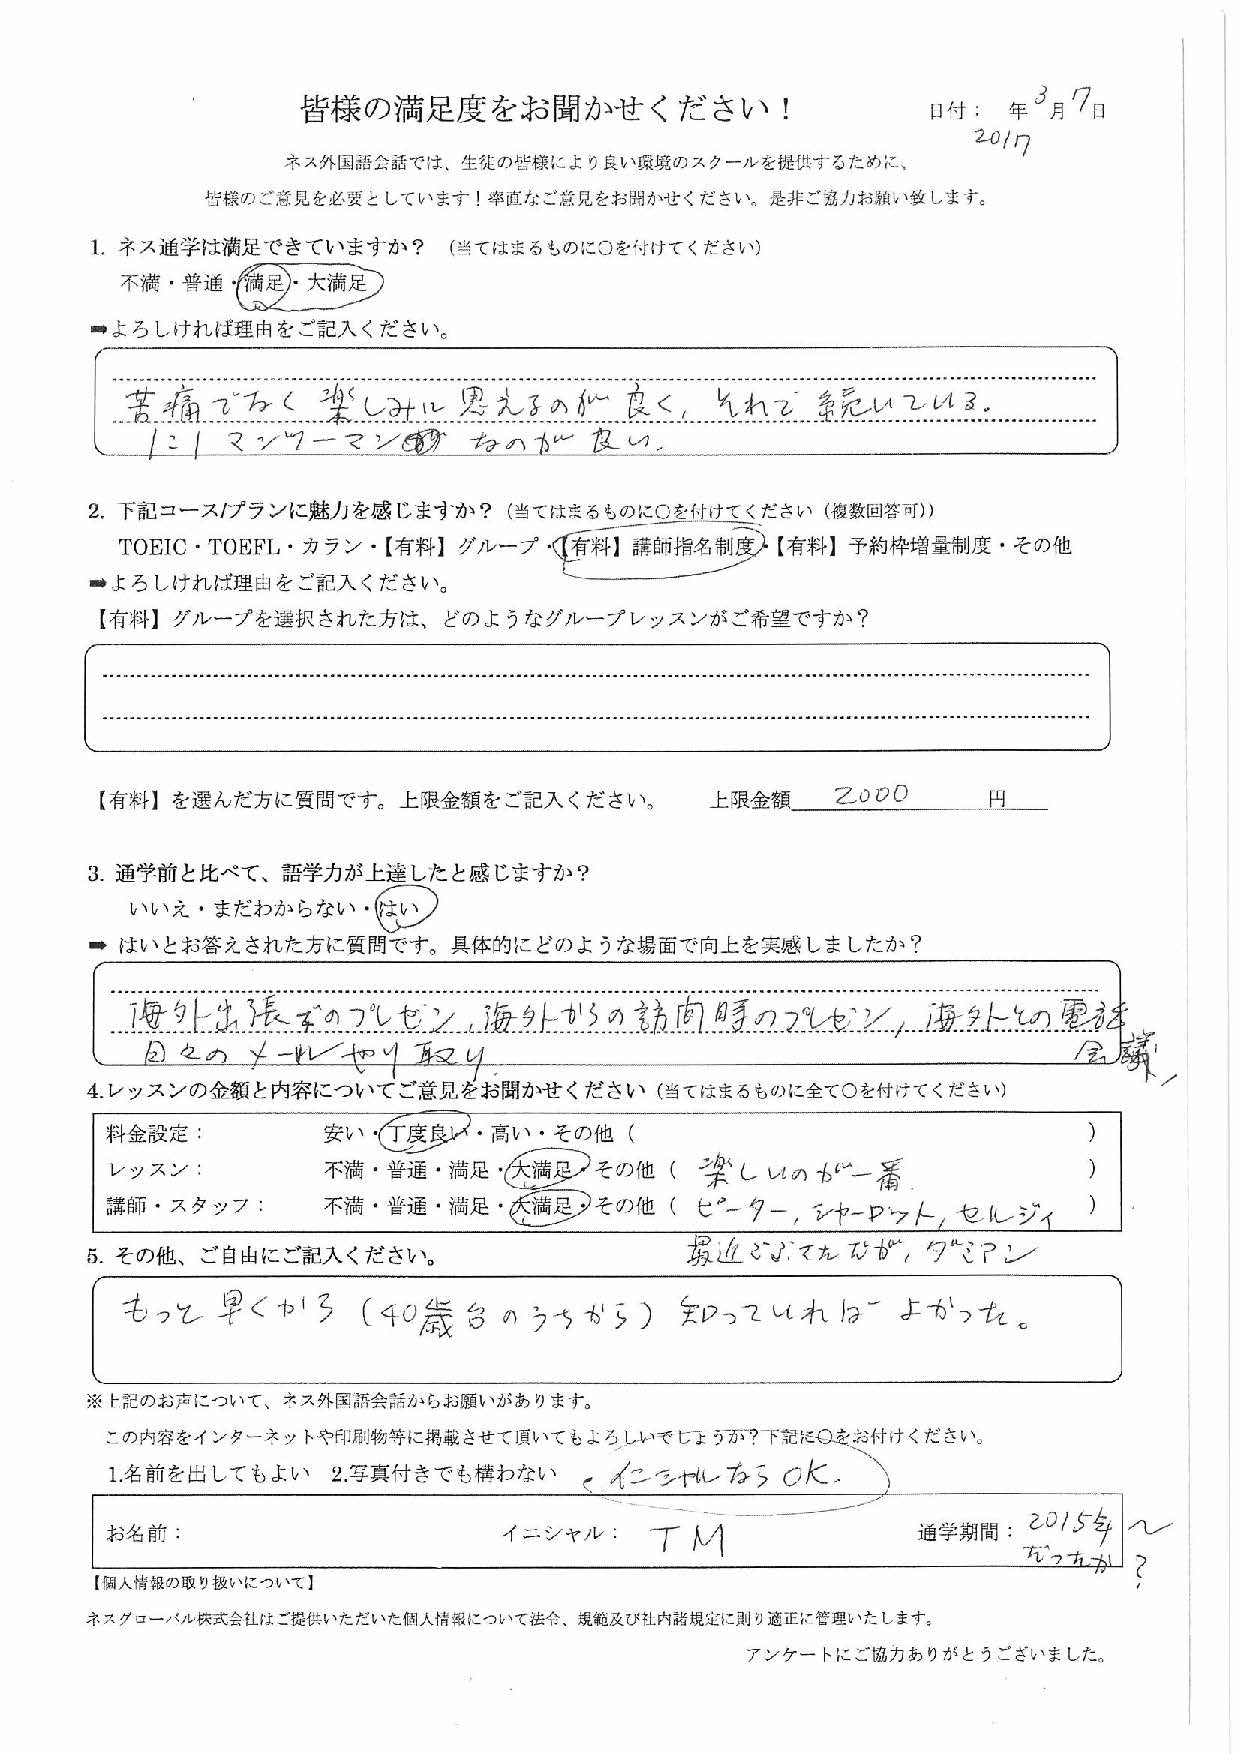 皆様の満足度をお聞かせください！
日付： 年3月7日
2017
ネス外国語会話では、生徒の皆様により良い環境のスクールを提供するために、
皆様のご意見を必要としています！率直なご意見をお聞かせください。是非ご協力お願い致します。
1. ネス通学は満足できていますか？（当てはまるものに○を付けてください）
不満・普通・満足・大満足
➡よろしければ理由をご記入ください。
苦痛でなく楽しみに思えるのが良く，それで続いている．
1:1マンツーマン なのが良い．
2. 下記コース/プランに魅力を感じますか？（当てはまるものに○を付けてください（複数回答可））
TOEIC・TOEFL・カラン・【有料】グループ・【有料】講師指名制度・【有料】予約枠増量制度・その他
➡よろしければ理由をご記入ください。
【有料】グループを選択された方は、どのようなグループレッスンがご希望ですか？
【有料】を選んだ方に質問です。上限金額をご記入ください。 上限金額 2000 円
3. 通学前と比べて、語学力が上達したと感じますか？
いいえ・まだわからない・はい
➡ はいとお答えされた方に質問です。具体的にどのような場面で向上を実感しましたか？
海外出張でのプレゼン，海外からの訪問時のプレゼン，海外との電話
会議，
日々のメールやり取り
4.レッスンの金額と内容についてご意見をお聞かせください（当てはまるものに全て○を付けてください）
料金設定： 安い・丁度良い・高い・その他（ ）
レッスン： 不満・普通・満足・大満足・その他（ 楽しいのが一番． ）
講師・スタッフ： 不満・普通・満足・大満足・その他（ ピーター，シャーロット，セルジィ ）
最近ごぶさただが，ダミアン
5. その他、ご自由にご記入ください。
もっと早くから（40歳台のうちから）知っていればよかった。
※上記のお声について、ネス外国語会話からお願いがあります。
この内容をインターネットや印刷物等に掲載させて頂いてもよろしいでしょうか？下記に○をお付けください。
1.名前を出してもよい 2.写真付きでも構わない ・イニシャルならOK．
お名前： イニシャル： TM 通学期間： 2015年〜
だったか？
【個人情報の取り扱いについて】
ネスグローバル株式会社はご提供いただいた個人情報について法令、規範及び社内諸規定に則り適正に管理いたします。
アンケートにご協力ありがとうございました。